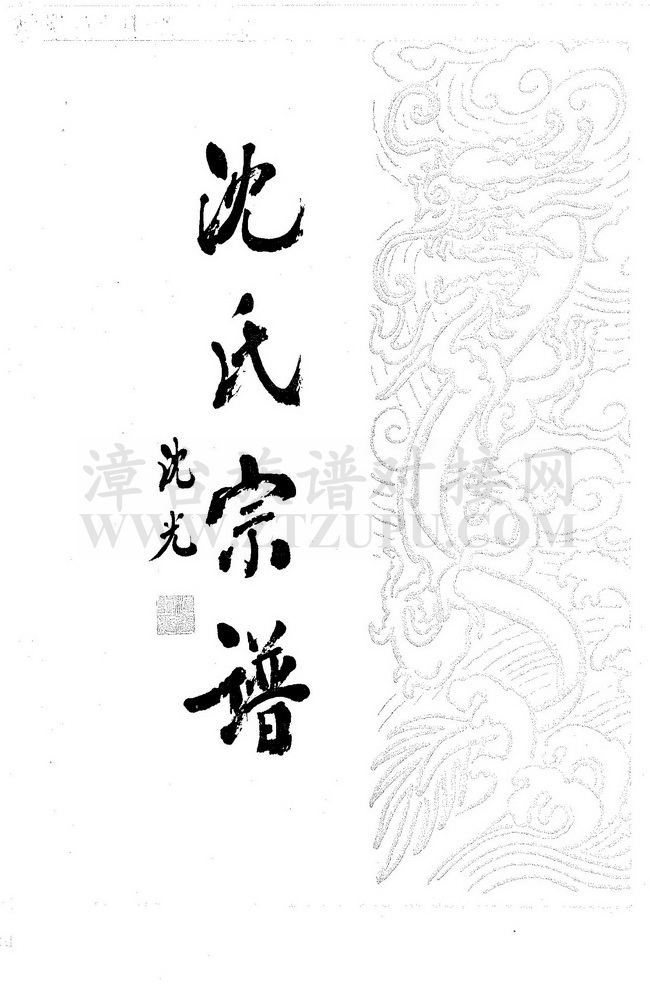 沈氏宗谱
沈光
漳台族谱对接网
WWW.ZTZUPU.COM